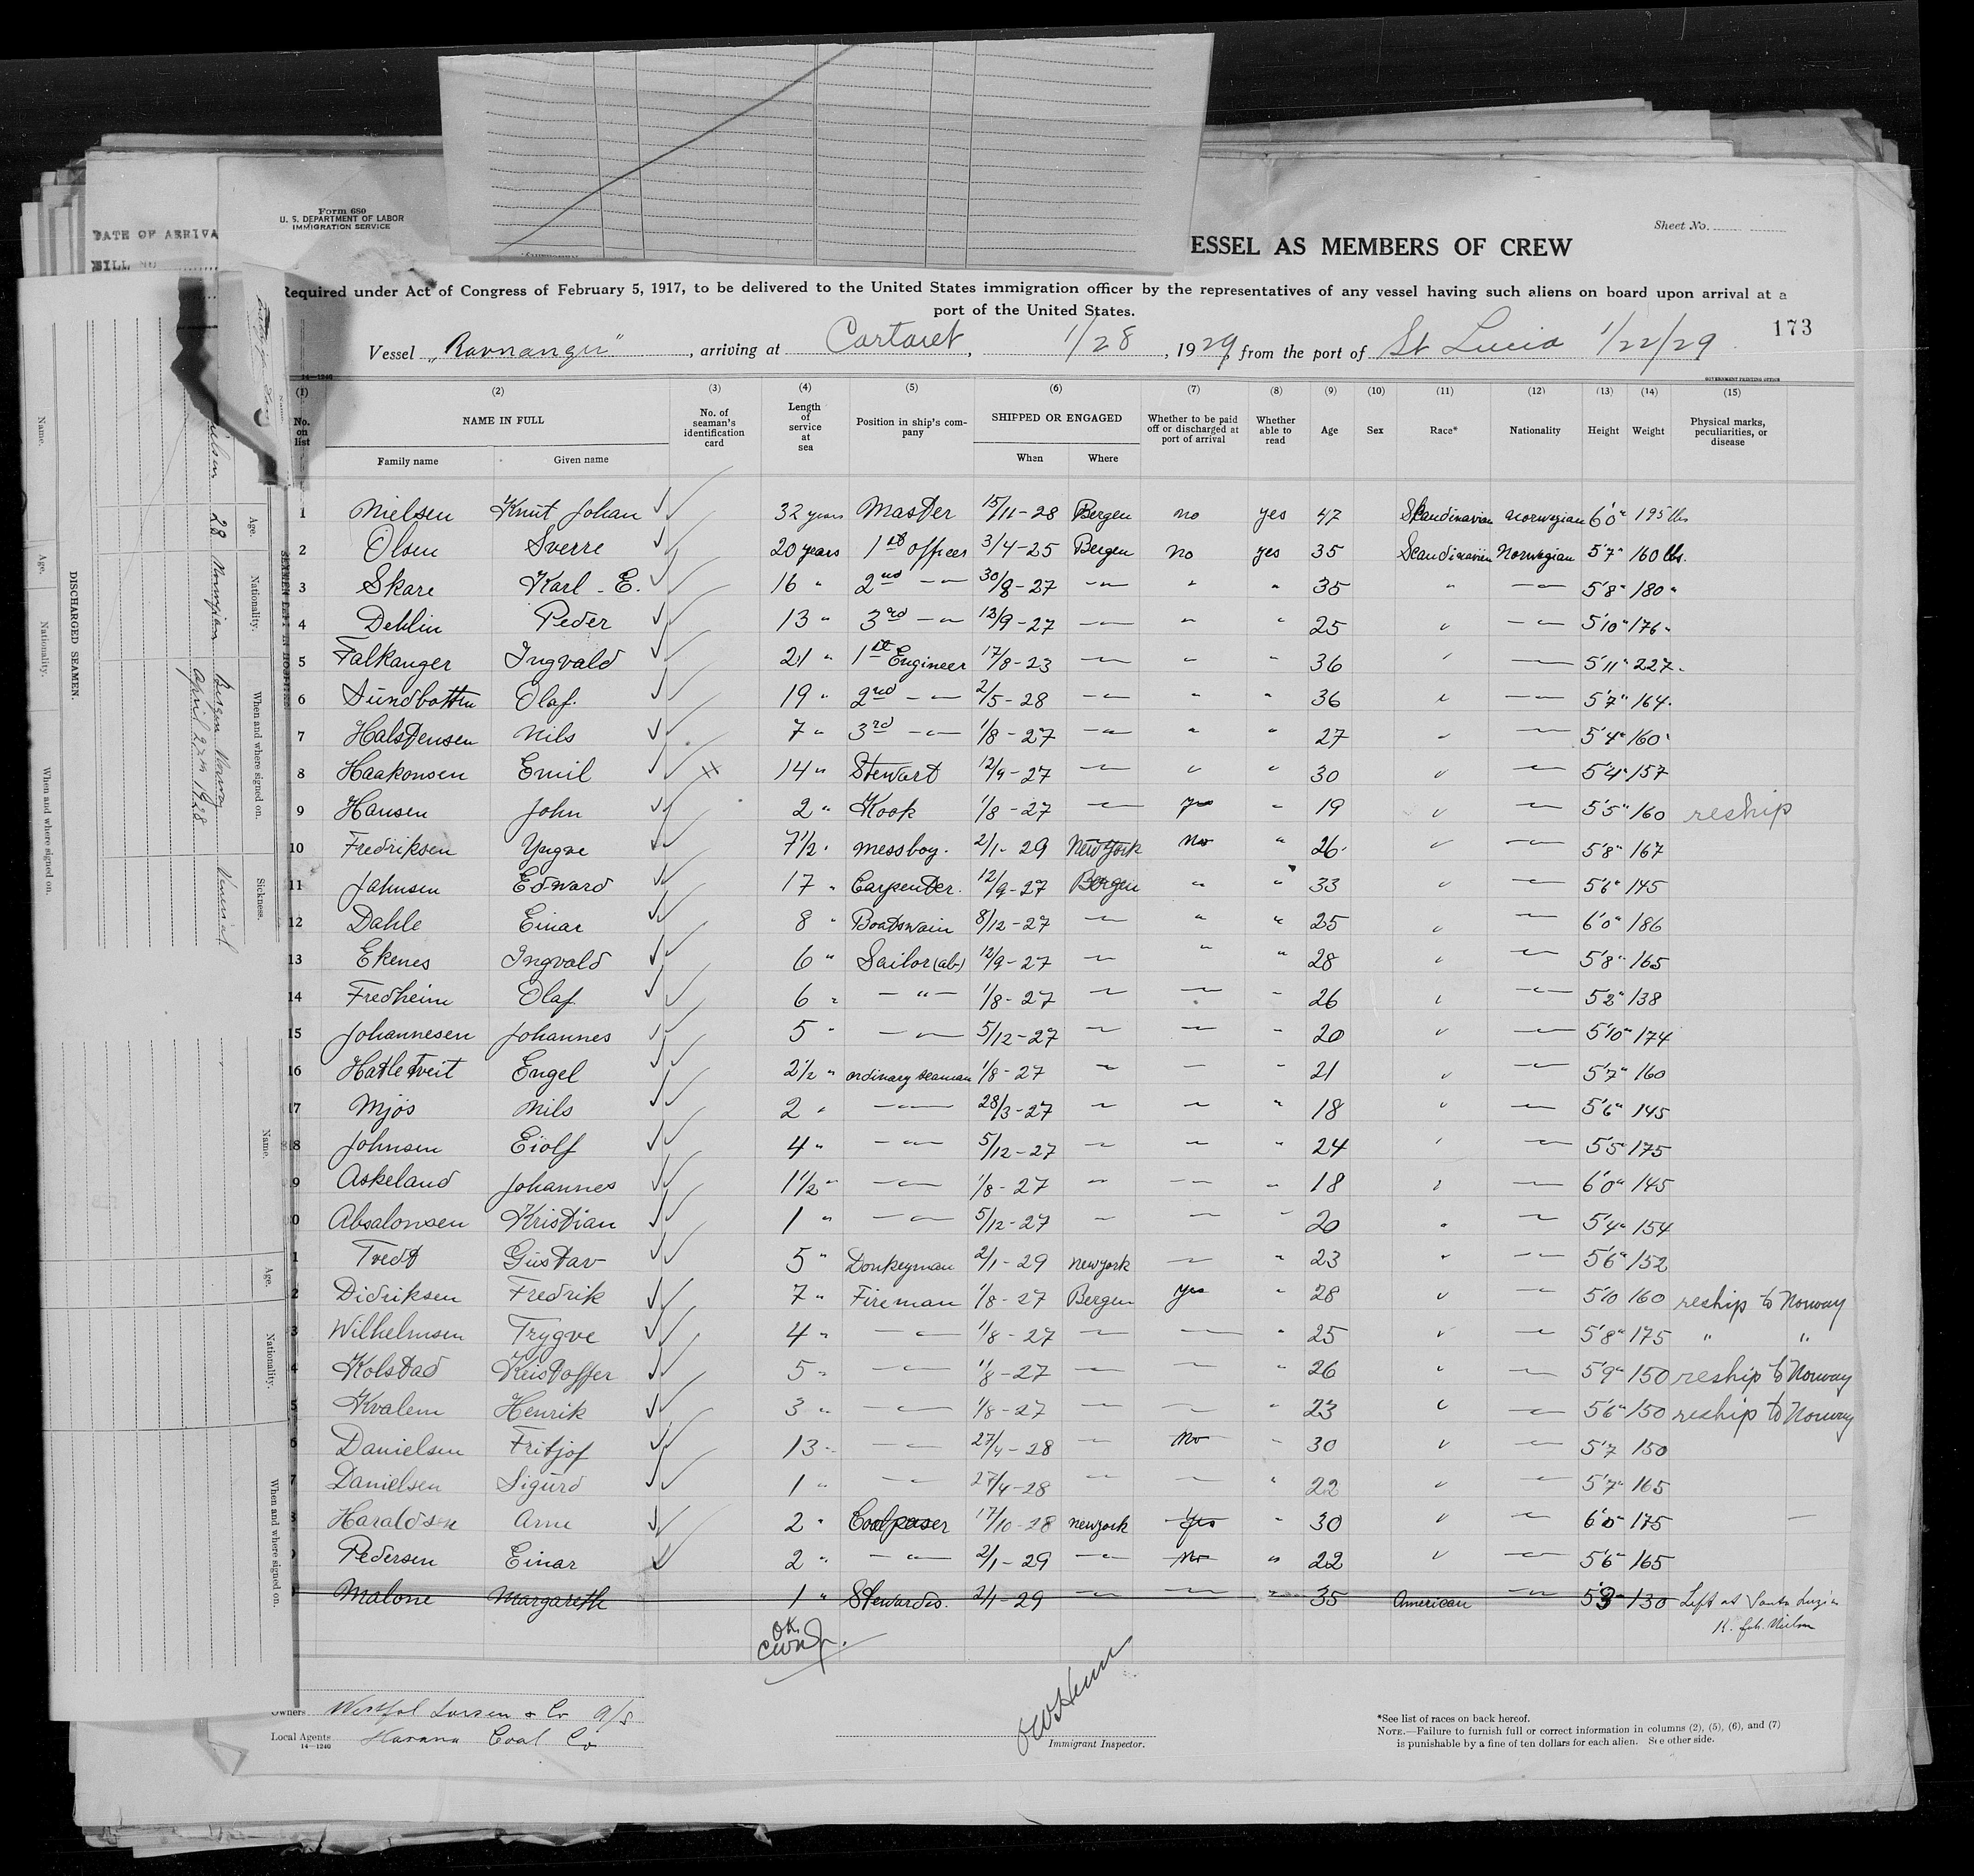 Form 680
U. S. DEPARTMENT OF LABOR
IMMIGRATION SERVICE
Sheet No.
ESSEL AS MEMBERS OF CREW
Required under Act of Congress of February 5, 1917, to be delivered to the United States immigration officer by the representatives of any vessel having such aliens on board upon arrival at a
port of the United States.
173
Vessel „Ravnanger“, arriving at Cartaret, 1/28, 1929, from the port of St Lucia 1/22/29
14—1240
GOVERNMENT PRINTING OFFICE
(1) (2) (3) (4) (5) (6) (7) (8) (9) (10) (11) (12) (13) (14) (15)
No. on list NAME IN FULL No. of seaman's identification card Length of service at sea Position in ship's company SHIPPED OR ENGAGED Whether to be paid off or discharged at port of arrival Whether able to read Age Sex Race* Nationality Height Weight Physical marks, peculiarities, or disease
Family name Given name When Where
1 Nielsen Knut Johan 32 years Master 15/11-28 Bergen no yes 47 Skandinavian norwegian 6'0" 195 lbs
2 Olsen Sverre 20 years 1st officer 3/4-25 Bergen no yes 35 Scandinavien Norwegian 5'7" 160 lbs.
3 Skare Karl - E. 16 " 2nd —"— 30/8-27 —"— " " 35 " —"— 5'8" 180 "
4 Dehlin Peder 13 " 3rd —"— 12/9-27 —"— " " 25 " —"— 5'10" 176 "
5 Falkanger Ingvald 21 " 1st Engineer 17/8-23 —"— " " 36 " —"— 5'11" 227 "
6 Sundbotten Olaf. 19 " 2nd —"— 2/5-28 —"— " " 36 " —"— 5'7" 164 "
7 Halstensen Nils 7 " 3rd —"— 1/8-27 —"— " " 27 " —"— 5'4" 160 "
8 Haakonsen Emil 14 " Stewart 12/9-27 —"— " " 30 " —"— 5'4" 157
9 Hansen John 2 " Kook 1/8-27 —"— yes " 19 " —"— 5'5" 160 reship
10 Fredriksen Yngve 7 1/2 " messboy. 2/1-29 New York No " 26 " —"— 5'8" 167
11 Johnsen Edward 17 " Carpenter. 12/9-27 Bergen " " 33 " —"— 5'6" 145
12 Dahle Einar 8 " Boatswain 8/12-27 —"— " " 25 " —"— 6'0" 186
13 Ekenes Ingvald 6 " Sailor (ab) 12/9-27 —"— " " 28 " —"— 5'8" 165
14 Fredheim Olaf 6 " —"— 1/8-27 —"— —"— " 26 " —"— 5'2" 138
15 Johannesen Johannes 5 " —"— 5/12-27 —"— —"— " 20 " —"— 5'10" 174
16 Hatletveit Engel 2 1/2 " ordinary seaman 1/8-27 —"— —"— " 21 " —"— 5'7" 160
17 Mjøs Nils 2 " —"— 28/3-27 —"— —"— " 18 " —"— 5'6" 145
18 Johnsen Eiolf 4 " —"— 5/12-27 —"— —"— " 24 " —"— 5'5" 175
9 Askeland Johannes 1 1/2 " —"— 1/8-27 —"— —"— " 18 " —"— 6'0" 145
0 Absalonsen Kristian 1 " —"— 5/12-27 —"— —"— " 20 " —"— 5'4" 154
1 Tvedt Gustav 5 " Donkeyman 2/1-29 new york —"— " 23 " —"— 5'6" 152
2 Didriksen Fredrik 7 " Fireman 1/8-27 Bergen yes " 28 " —"— 5'10 160 reship to Norway
3 Wilhelmsen Trygve 4 " —"— 1/8-27 —"— —"— " 25 " —"— 5'8" 175 " "
4 Kolstad Kristoffer 5 " —"— 1/8-27 —"— —"— " 26 " —"— 5'9" 150 reship to Norway
5 Kvalem Henrik 3 " —"— 1/8-27 —"— —"— " 23 " —"— 5'6" 150 reship to Norway
6 Danielsen Fritjof 13 " —"— 27/4-28 —"— No " 30 " —"— 5'7 150
7 Danielsen Sigurd 1 " —"— 27/4-28 —"— —"— " 22 " —"— 5'7" 165
8 Haraldsen Arne 2 " Coalpaser 17/10-28 new york yes " 30 " —"— 6'0" 175
Pedersen Einar 2 " —"— 2/1-29 —"— No " 22 " —"— 5'6" 165
Malone Margareth 1 " Stewardes. 2/1-29 —"— —"— " 35 American —"— 5'3" 130 Left at Santa Lucia
K. Joh. Nielsen
OK
Owners Westfal Larsen & Co A/S
Local Agents Havana Coal Co
14—1240
Immigrant Inspector.
*See list of races on back hereof.
NOTE.—Failure to furnish full or correct information in columns (2), (5), (6), and (7)
is punishable by a fine of ten dollars for each alien. See other side.
DATE OF ARRIVA
BILL NO
SEAMEN LEFT IN HOSPITAL
Name. Age. Nationality. When and where signed on. Sickness.
28 Norwegian Bergen Norway Venerial
April 27th 1928
DISCHARGED SEAMEN.
Name. Age. Nationality. When and where signed on.
Name. Age. Nationality. When and where signed on.